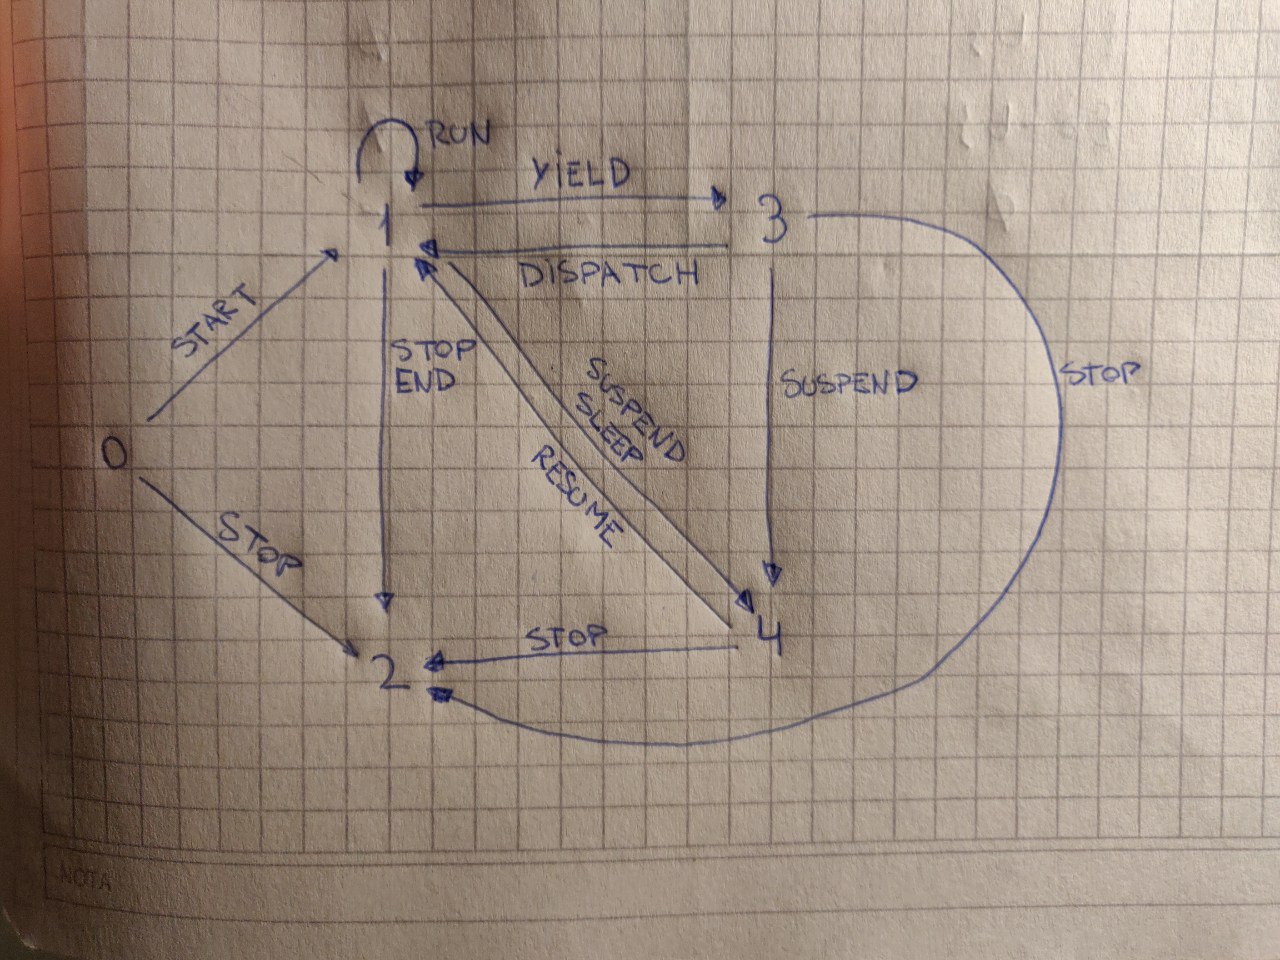 RUN
YiELD
1
3
DISPATCH
START
STOP
END
SUSPEND
SLEEP
SUSPEND
STOP
0
RESUME
STOP
STOP
4
2
NOTA